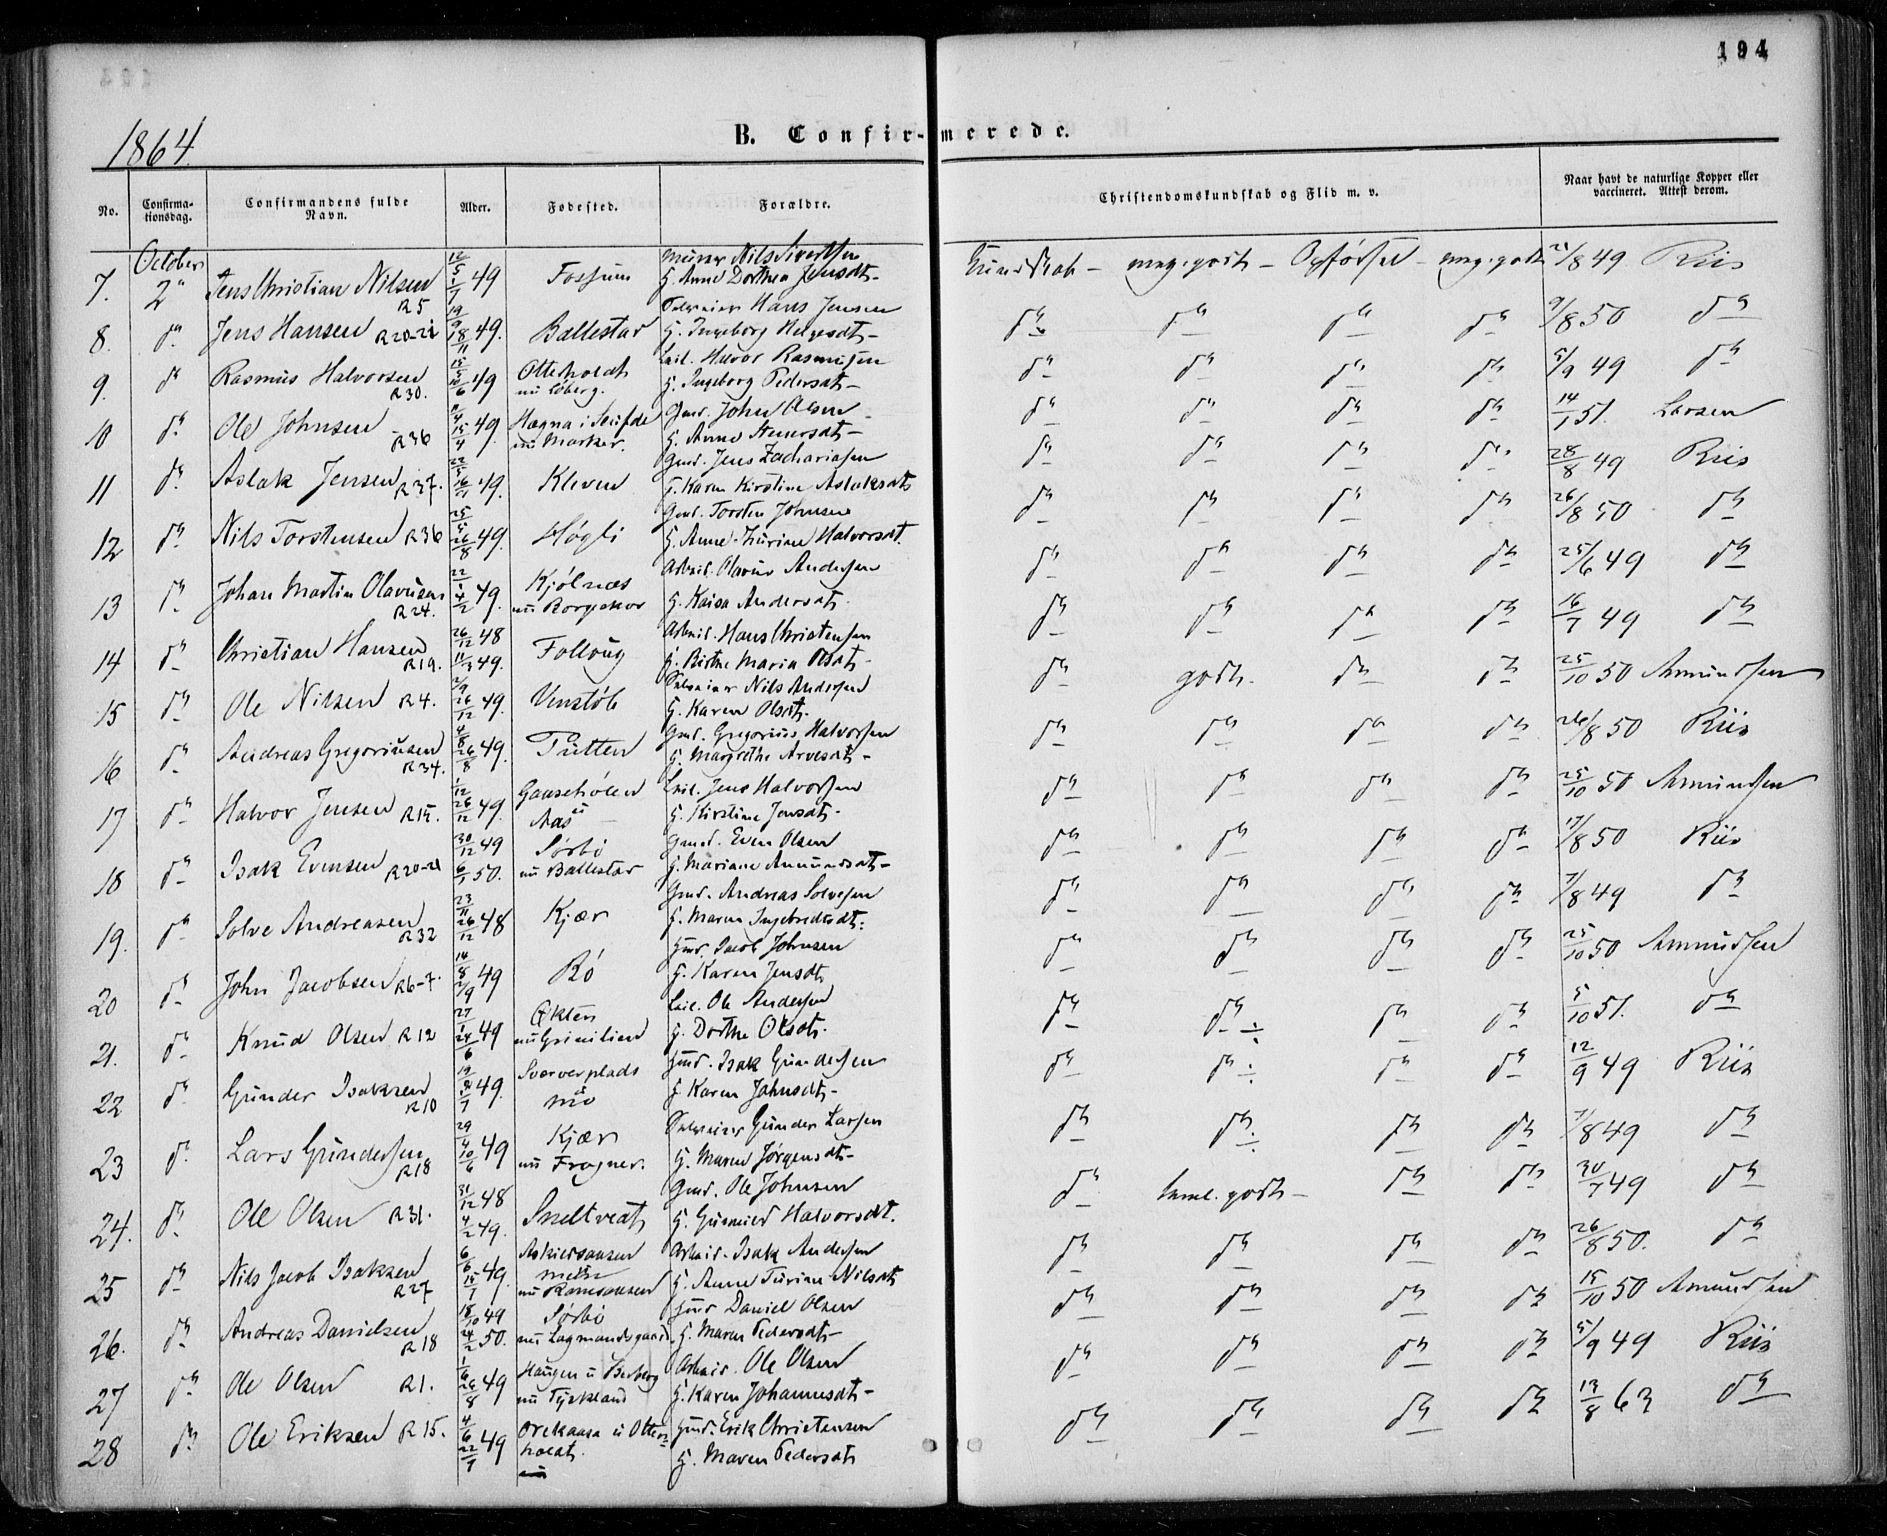 194
1864
B. Confirmerede.
No. Confirmationsdag. Confirmandens fulde Navn. Alder. Fødested. Forældre. Christendomskundskab og Flid m. v. Naar havt de naturlige Kopper eller vaccineret. Attest derom.
October
7. 2 Jens Christian Nilsen R5 49 Fossum Murer Nils Sivertsen
G. Anne Dorthea Jensdt. Kundskab – meg. godt – Opførsel – meg. godt 21/8 49 Riis
8. d Jens Hansen R20-21 49. Ballestad Selveier Hans Jensen
G. Ingeborg Helgesdt. d d d d 9/8 50 d
9. d Rasmus Halvorsen R30. 49 Otterholdt nu Löberg. Leil. Havor Rasmusen
G. Ingeborg Pedersdt. d d d d 5/9 49 d
10 d Ole Johnsen R36 49. Hægna i nu Marker. Gmd. John Olsen
G. Anne d d d d 14/1 51. Larsen
11 d Aslak Jensen R37. 49. Kleven Gmd. Jens Zachariasen
G. Karen Kirstine Aslaksdt d d d d 28/8 49 Riis
12 d Nils Torstensen R36 49. Høgli Gmd. Torsten Johnsen
G. Anne Thurine Halvorsdt. d d d d 26/8 50 d
13 d Johan Martin Olavusen R24. 49. Kjölnæs nu Borgeskov Arbeid. Olavus Andersen
G. Kaisa Andersdt. d d d d 25/6 49 d
14 d Christian Hansen R19. 26/12 48 11/3 49. Follaug Arbeid. Hans Christensen
G. Birthe Maria Olsdt. d d d d 16/7 49 d
15 d Ole Nilsen R4. 49. Venstöb Selveier Nils Andersen
G. Karen Olsdt. d godt. d d 25/10 50 Amundsen
16 d Andreas Gregoriusen R34. 49. Tutten Gmd. Gregorius Halvorsen
G. Margrethe Arvesdt. d d d d 26/8 50 Riis
17 d Halvor Jensen R15. 49. Gaasehölen u Aas Leil. Jens Halvorsen
G. Kirstine Jensdt. d d d d 25/10 50 Amundsen
18 d Isak Evensen R20-21 30/12 49 6/1 50. Sörbö nu Ballestad Gmd. Even Olsen
G. Mariane Amundsdt. d d d d 17/8 50 Riis
19. d Solve Andreasen R32 48 Kjær Gmd. Andreas Solvesen
G. Maren Ingebretsdt. d d d d 7/8 49 d
20 d John Jacobsen R6-7. 49 Rö Gmd. Jacob Johnsen
G. Karen Jensdt. d d d d 25/10 50 Amundsen
21. d Knud Olsen R12 49 Økter nu Grinilien Leil. Ole Andersen
G. Dorthe Olsdt. d d d d 5/10 51. d
22 d Gunder Isaksen R10 49. Sværverplads Gmd. Isak Gundersen
G. Karen Johnsdt. d d d d 12/9 49 Riis
23 d Lars Gundersen R18 49 Kjær nu Frogner. Selveier Gunder Larsen
G. Maren Jørgensdt. d d d d 7/8 49 d
24. d Ole Olsen R31. 31/12 48 4/2 49. Sneltvedt Gmd. Ole Johnsen
G. Gunnild Halvorsdt. d taml. godt – d d 30/7 49 d
25 d Nils Jacob Isaksen R27 49. nu Ramsaasen Arbeid. Isak Andersen
G. Anne Turine Nilsdt d d d d 26/8 50. d
26. d Andreas Danielsen R18 18/10 49 24/2 50. Sørbö nu Lagmandsgaard Gmd Daniel Olsen
G. Maren Pedersdt. d d d d 15/10 50 Amundsen
27 d Ole Olsen R1. 49 Haugen u Berberg nu Tyskland Arbeid. Ole Olsen
G. Karen Johannesdt. d d d d 5/9 49 Riis
28 d Ole Eriksen R15. 49 Orekaasa u Otterholdt. Gmd. Erik Christensen
G. Maren Pedersdt d d d d 13/8 63 d